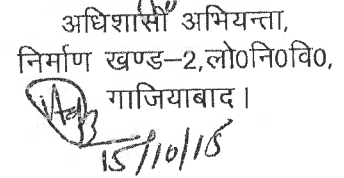 अधिशासी अभियन्ता,
निर्माण खण्ड–2,लो0नि0वि0,
गाजियाबाद।
15/10/16